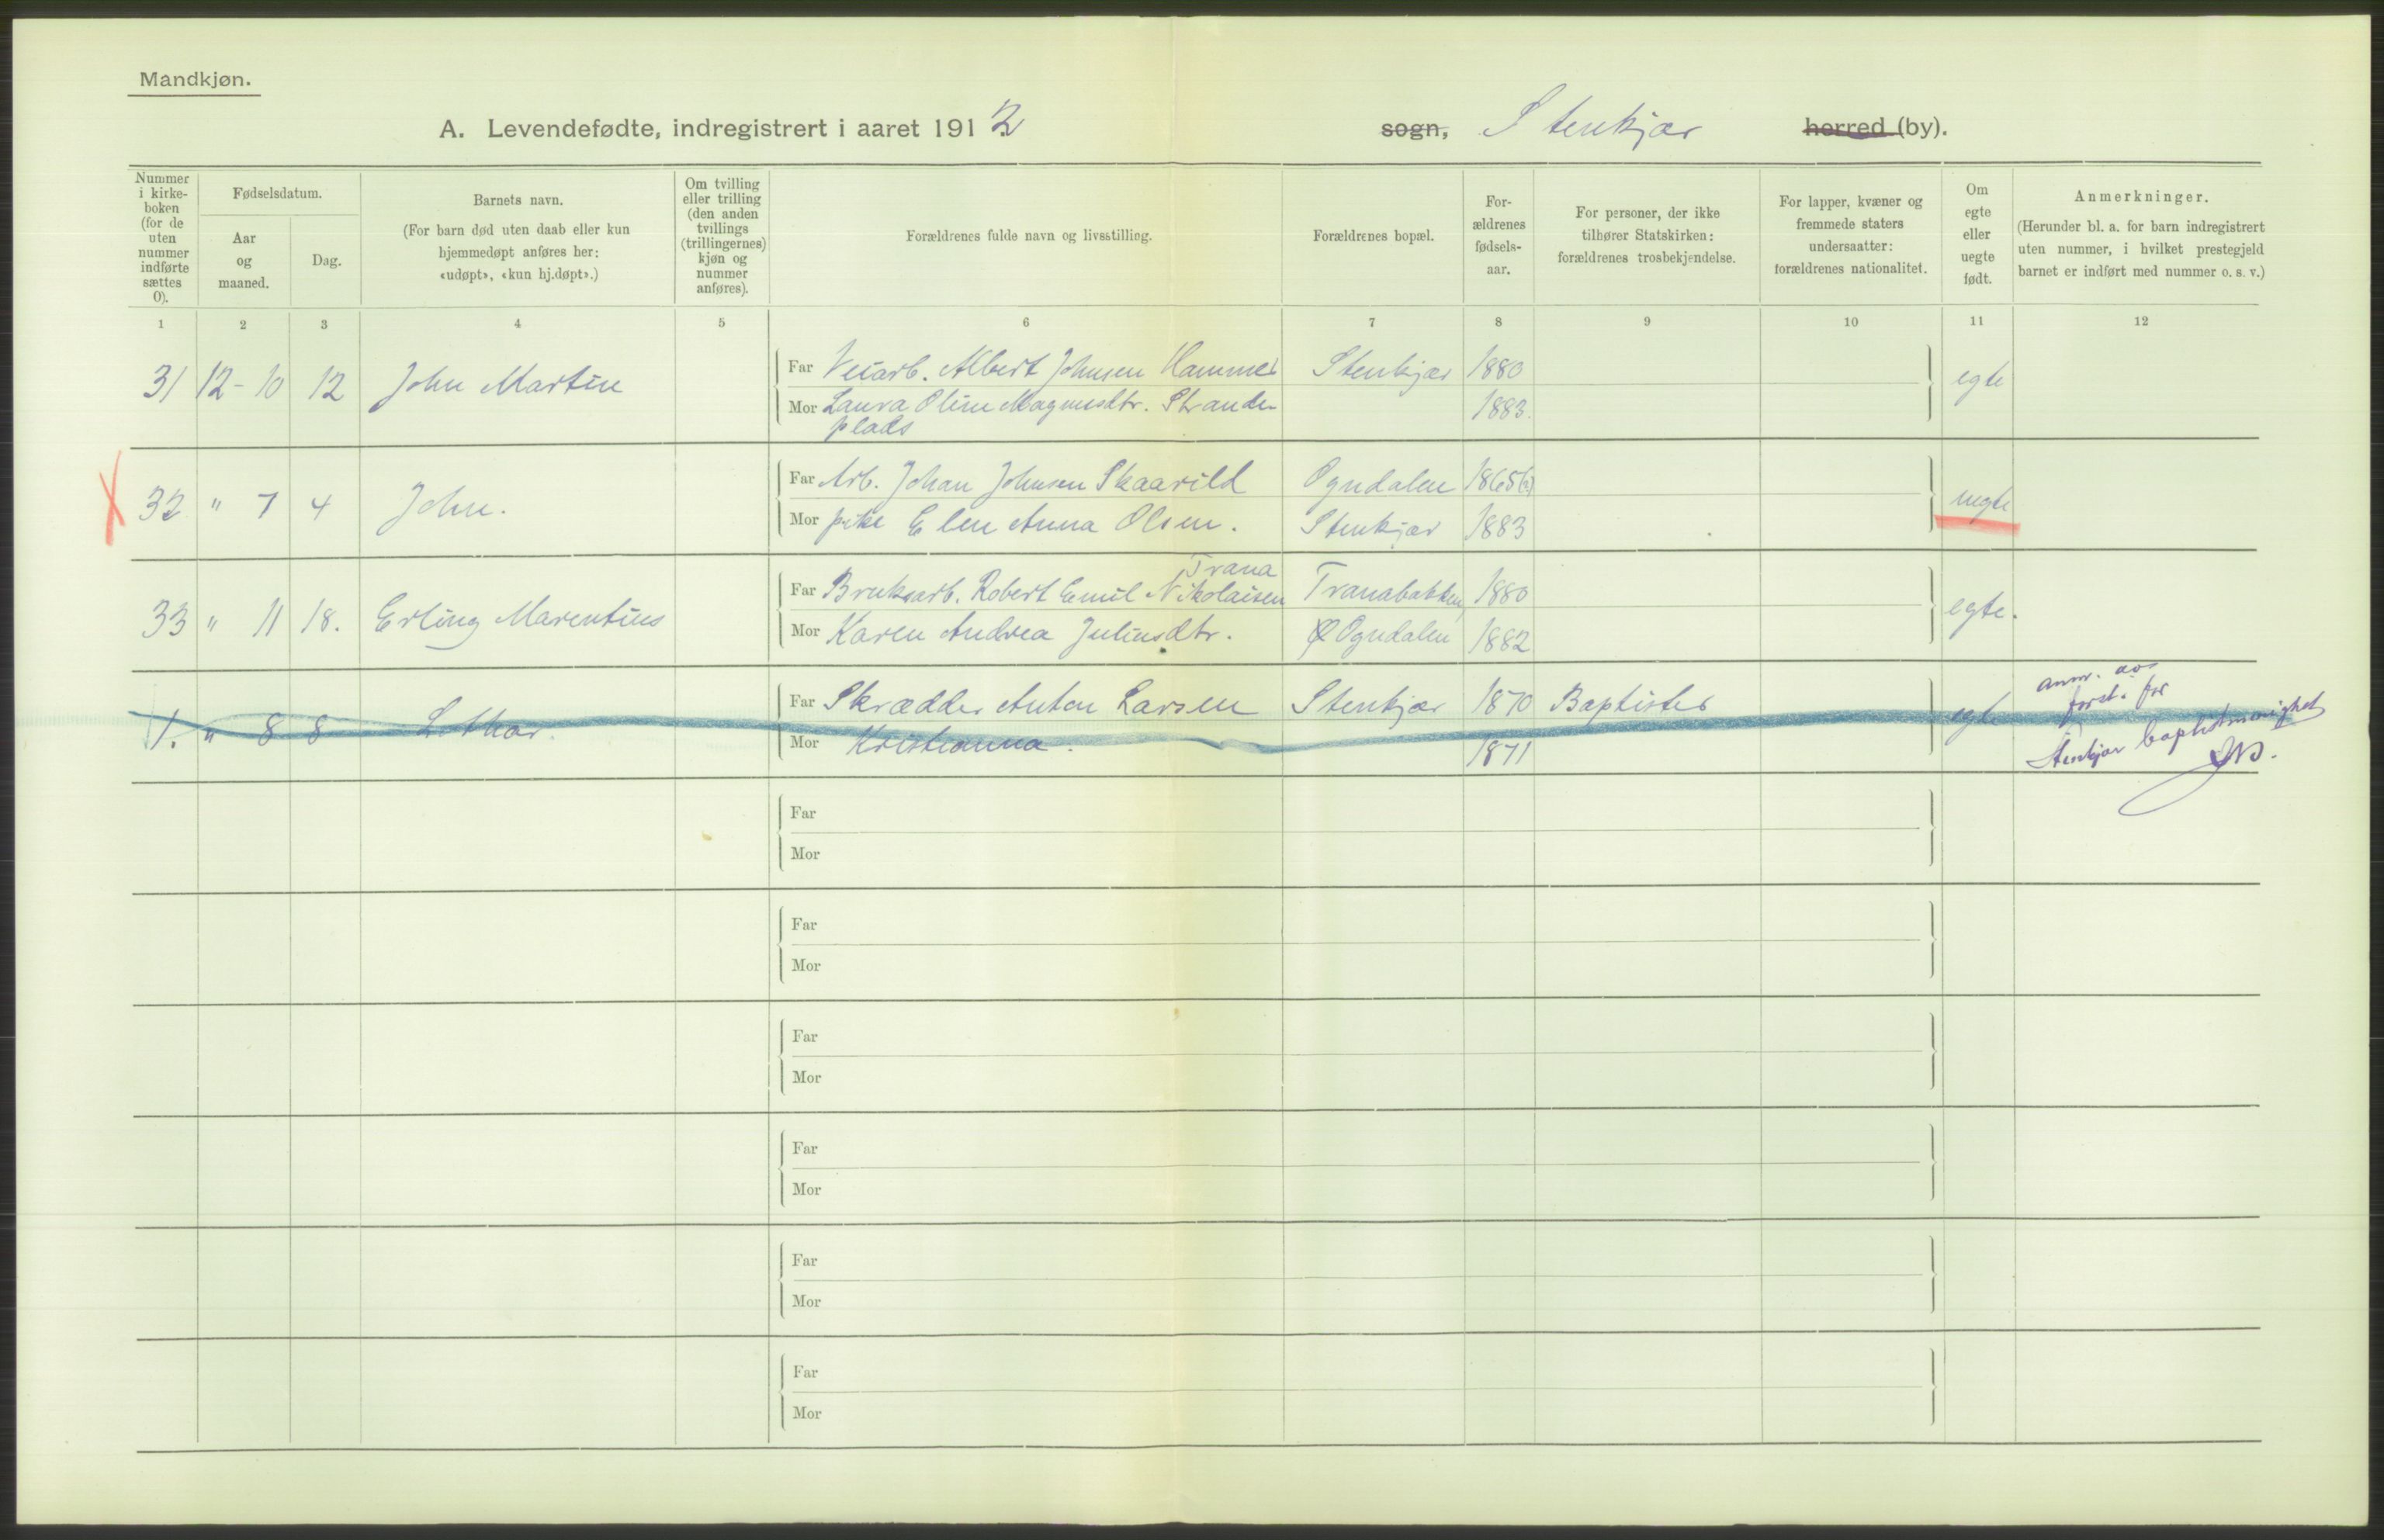 Mandkjøn.
A. Levendefødte, indregistrert i aaret 1912 sogn, Stenkjær herred (by).
Nummer i kirke-boken (for de uten nummer indførte sættes 0).
Fødselsdatum.
Aar og maaned.
Dag.
Barnets navn.
(For barn død uten daab eller kun hjemmedøpt anføres her: «udøpt», «kun hj.døpt».)
Om tvilling eller trilling (den anden tvillings (trillingernes) kjøn og nummer anføres).
Forældrenes fulde navn og livsstilling.
Forældrenes bopæl.
For-ældrenes fødsels-aar.
For personer, der ikke tilhører Statskirken: forældrenes trosbekjendelse.
For lapper, kvæner og fremmede staters undersaatter: forældrenes nationalitet.
Om egte eller uegte født.
Anmerkninger.
(Herunder bl. a. for barn indregistrert uten nummer, i hvilket prestegjeld barnet er indført med nummer o. s. v.)
1 2 3 4 5 6 7 8 9 10 11 12
31 12-10 12 John Martin Far Veiarb. Albert Johnsen Hammer Stenkjær 1880 egte
Mor Laura Oline Magnusdtr. Strande 1883.
plads
32 " 7 4 John. Far Arb. Johan Johnsen Skaarild Ogndalen 1865(?) uegte
Mor pike Elen Anna Olsen. Stenkjær 1883
Trana
33 " 11 18. Erling Marentius Far Bruksarb. Robert Emil Nikolaisen Tranabakken 1880 egte.
Mor Karen Andrea Juliusdtr. Ogndalen 1882
1. " 8 8 Lothar. Far Skrædder Anton Larsen Stenkjær 1870 Baptister egte
Mor Kristianna. 1871
anm. av
forst. for
Stenkjær baptistmenighet
Far
Mor
Far
Mor
Far
Mor
Far
Mor
Far
Mor
Far
Mor